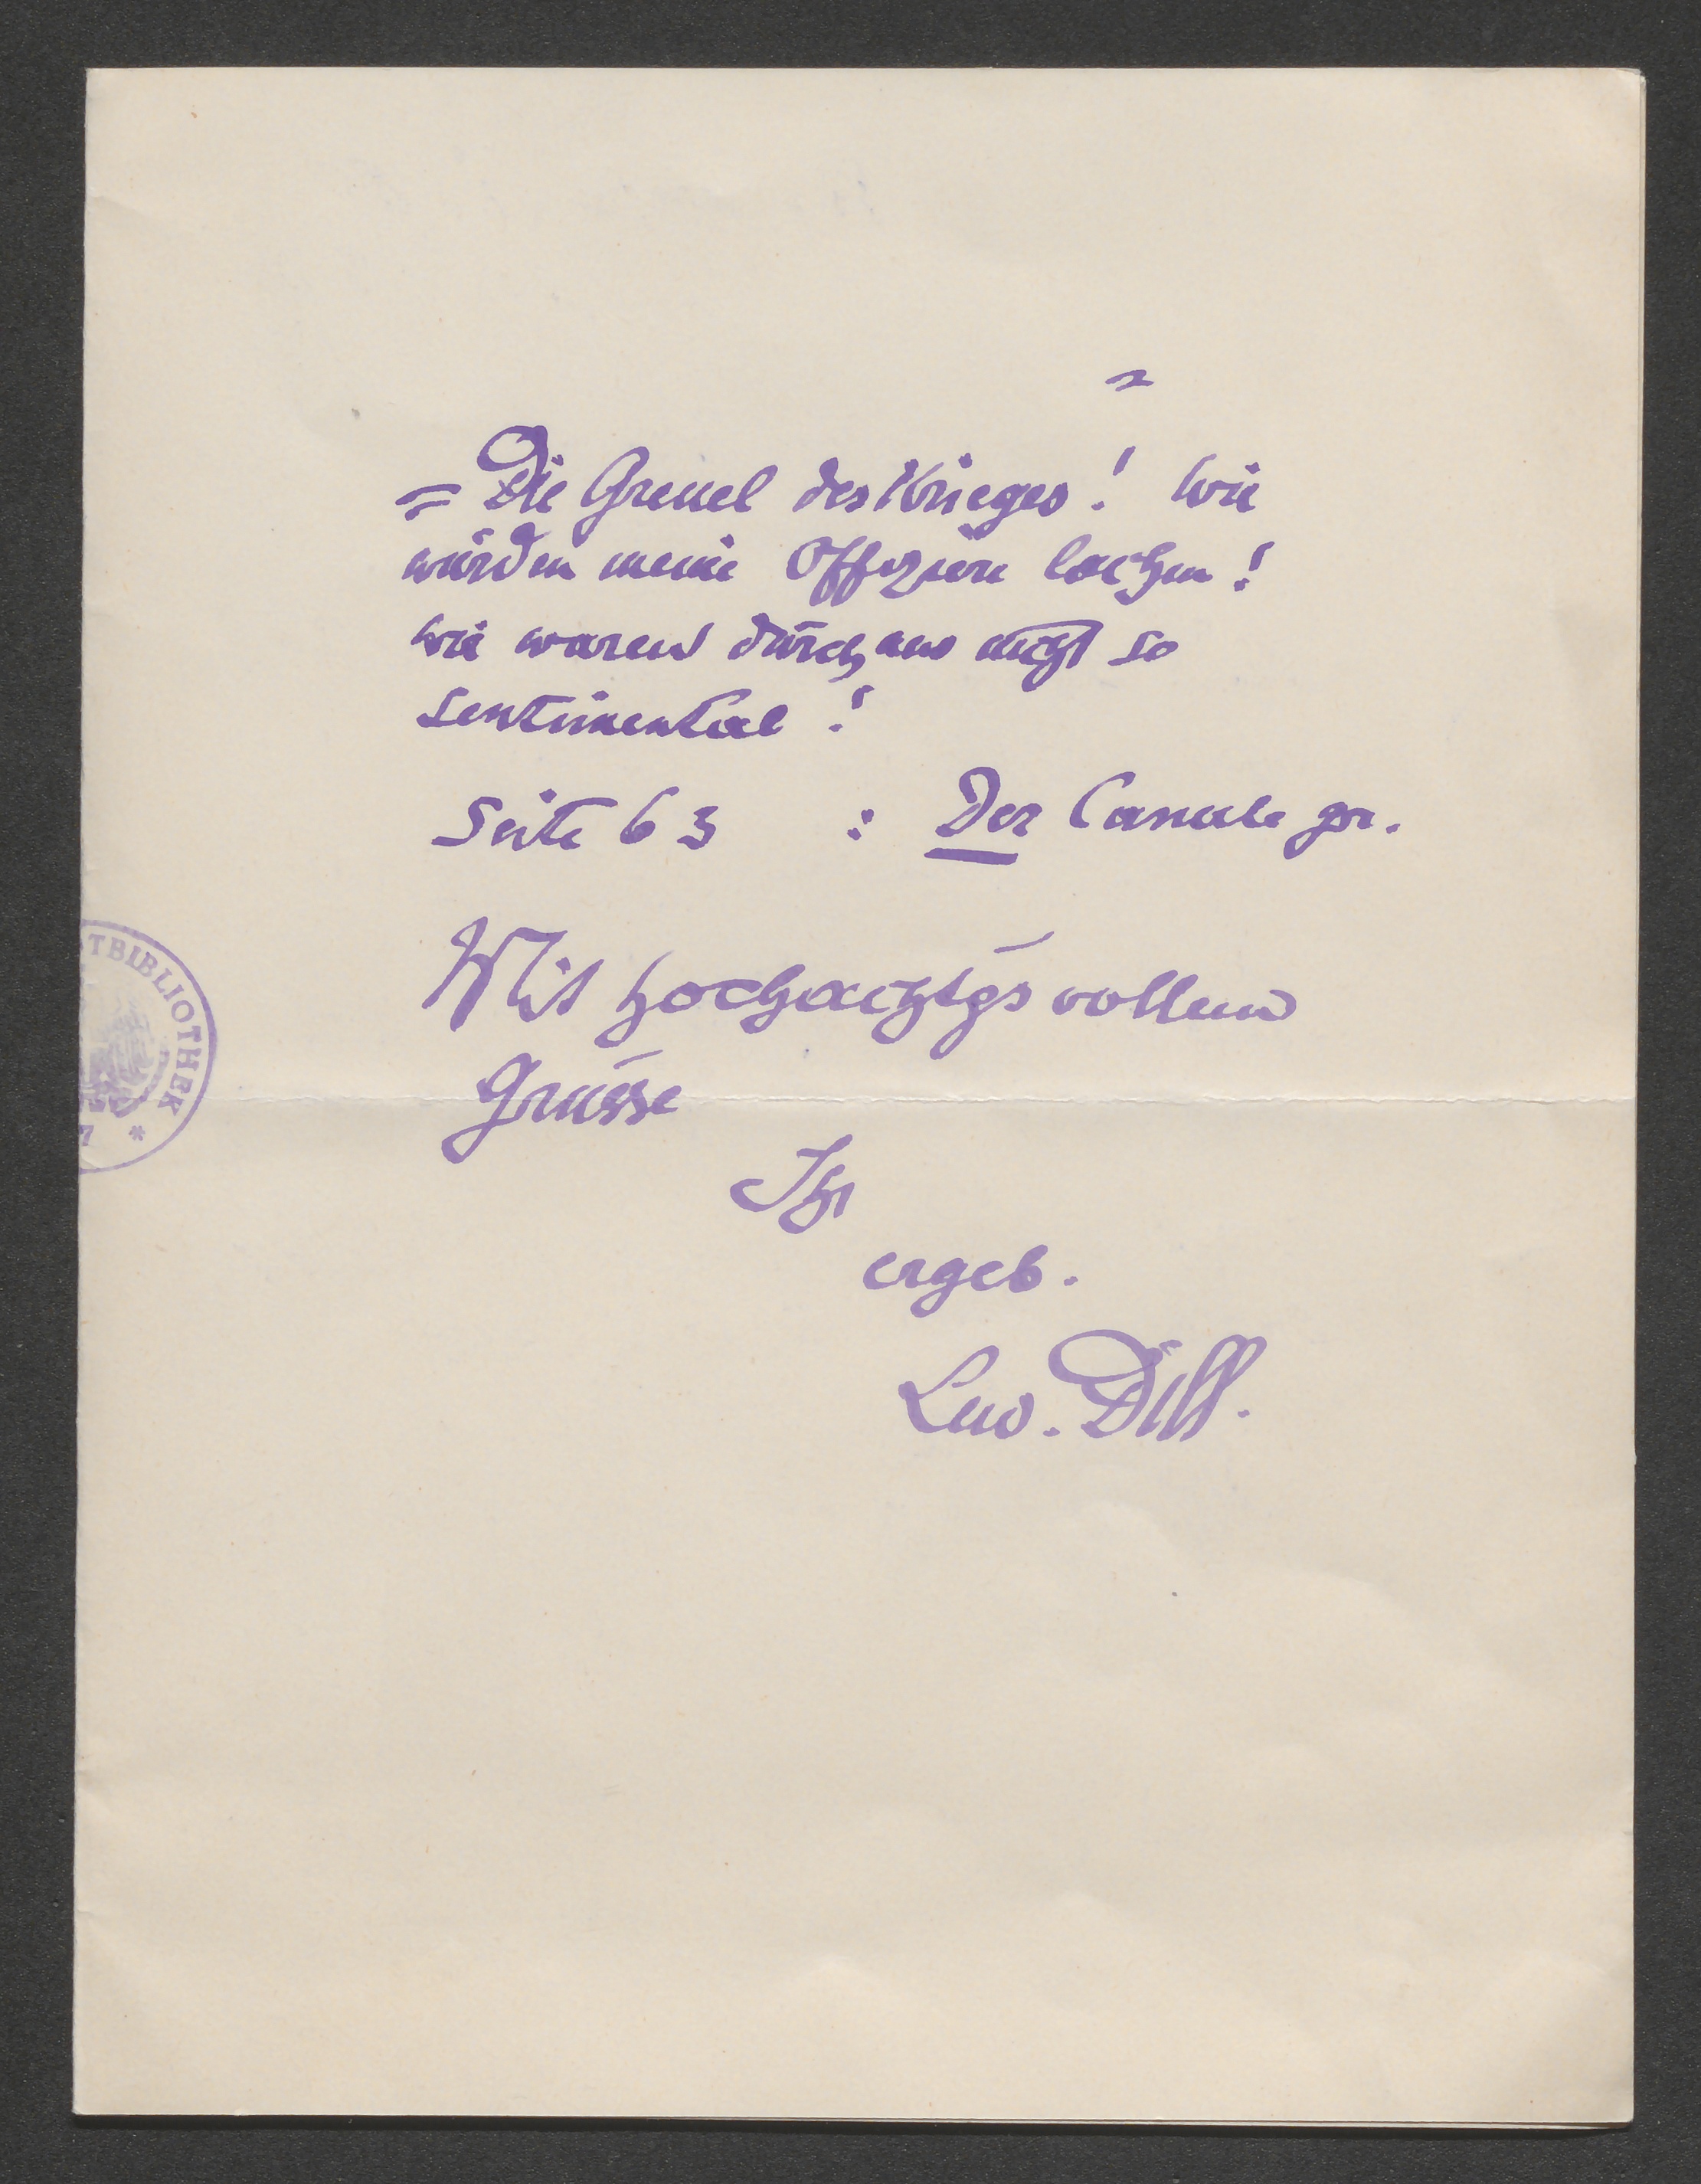 =
= Die Greuel des Krieges! Wie
würden meine Offiziere lachen!
wir waren durchaus nicht so
sentimental!
Seite 63 : Der Canale gr.
Mit hochachtgsvollem
Grüsse
Ihr
ergeb.
Ludw. Dill.
TBIBLIOTHEK
7 *